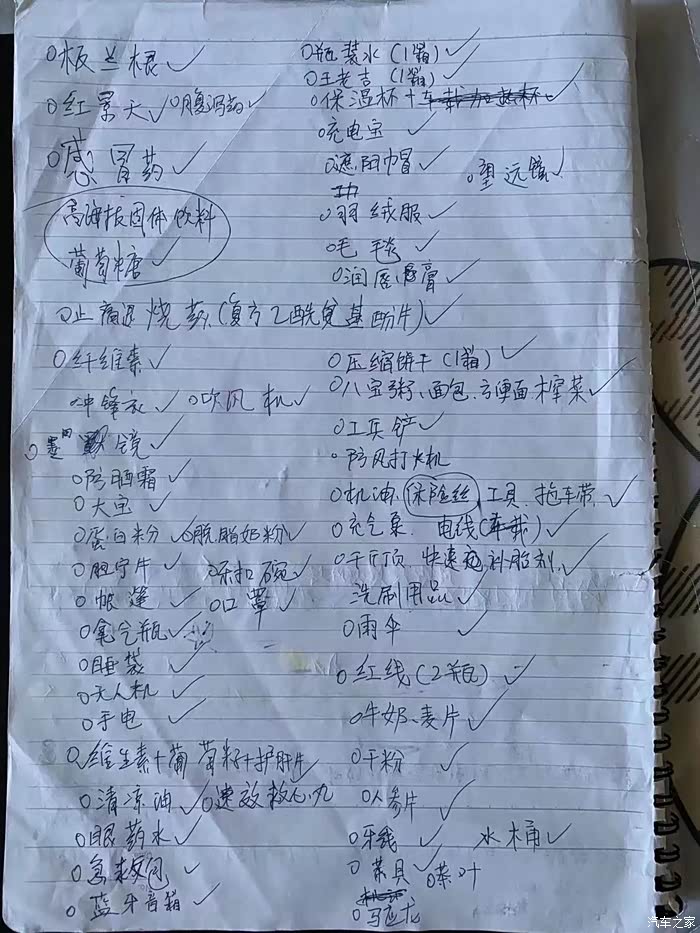 板兰根 ✓
红景天 ✓ 腹泻药 ✓
感冒药 ✓
高海拔固体饮料
葡萄糖 ✓
止痛退烧药 (复方乙酰
片) ✓
纤维素 ✓
冲锋衣 ✓ 吹风机 ✓
墨镜 ✓
防晒霜 ✓
大宝 ✓
蛋白粉 ✓ 脱脂奶粉 ✓
胆宁片 ✓ 碗 ✓
帐篷 ✓ 口罩 ✓
氧气瓶 ✓
睡袋 ✓
无人机 ✓
手电 ✓
维生素+葡萄籽+护肝片
清凉油 ✓ 速效救心丸
眼药水 ✓
急救包 ✓
蓝牙音箱 ✓
瓶装水 (1箱) ✓
王老吉 (1箱) ✓
保温杯+车载加热杯 ✓
充电宝 ✓
遮阳帽 ✓ 望远镜 ✓
羽绒服 ✓
毛毯 ✓
润唇膏 ✓
压缩饼干 (1箱) ✓
八宝粥、面包、方便面、榨菜 ✓
工兵铲 ✓
防风打火机
机油、保险丝、工具、拖车带、✓
充气泵、电线(车载) ✓
千斤顶、快速补胎剂、✓
洗刷用品 ✓
雨伞 ✓
红线 (2瓶) ✓
牛奶、麦片 ✓
干粉 ✓
人参片 ✓
牙线 ✓ 水桶 ✓
茶具 ✓ 茶叶
马应龙
汽车之家